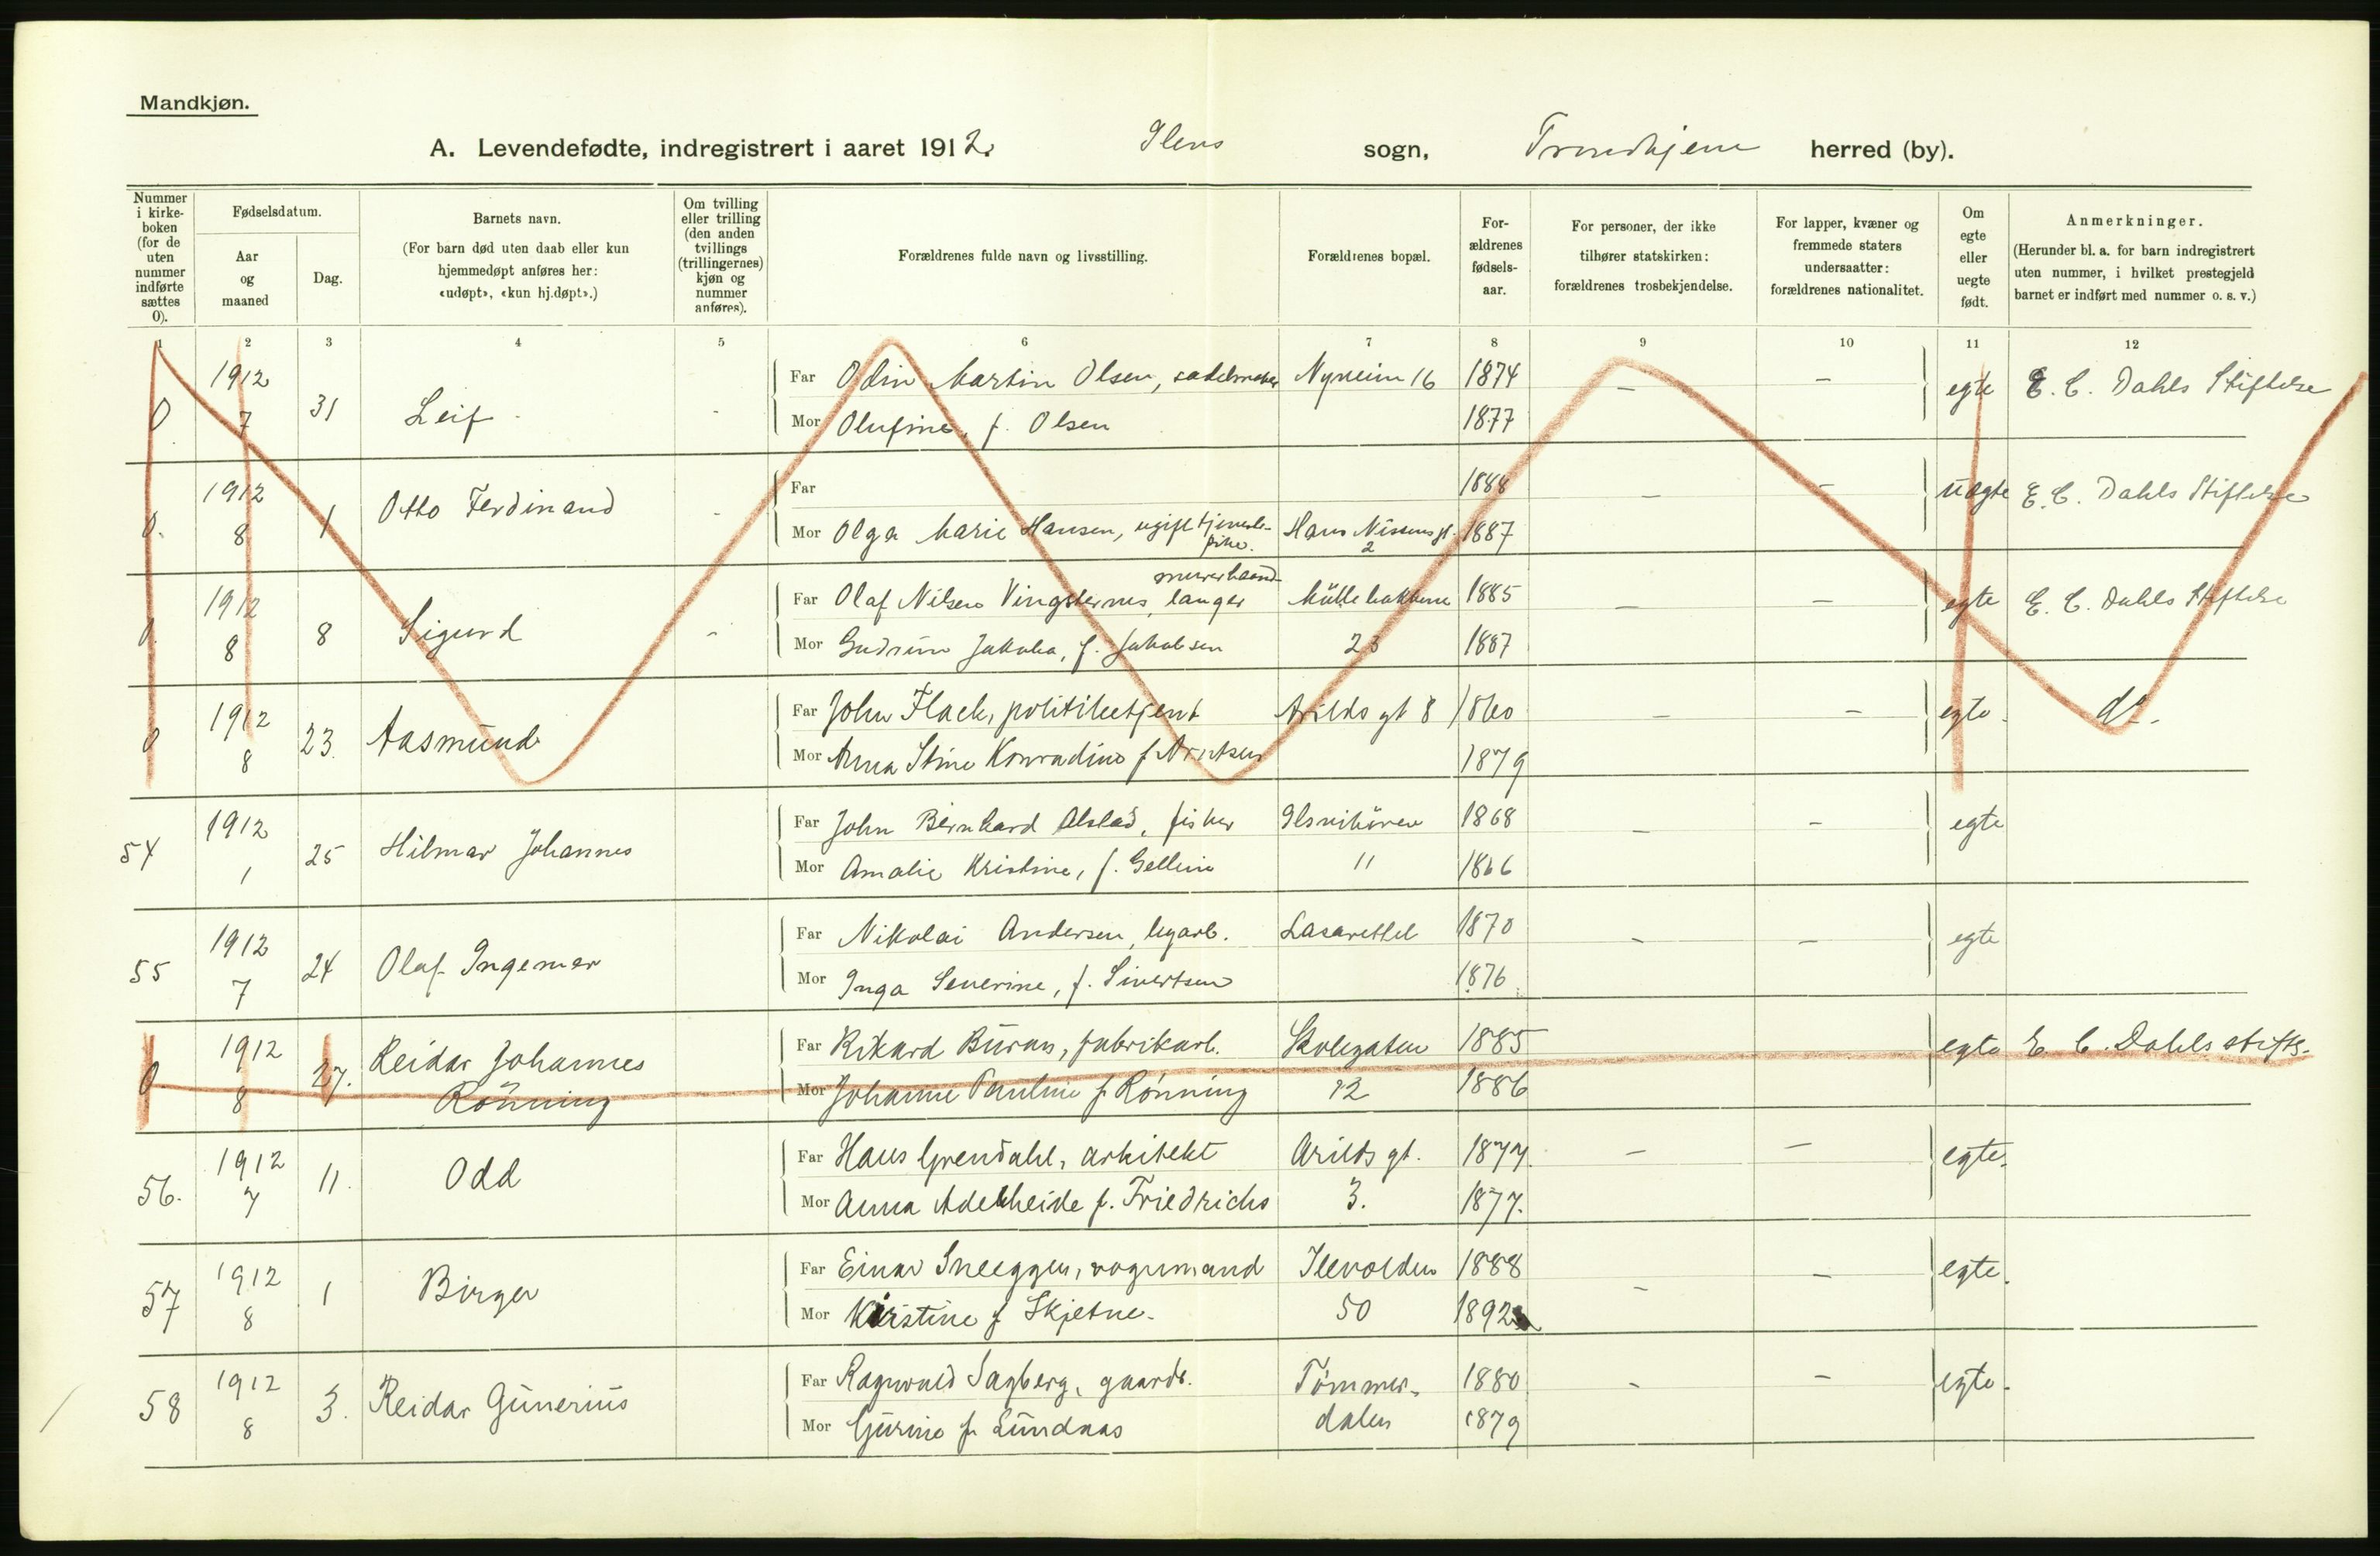 Mandkjøn.
A. Levendefødte, indregistrert i aaret 1912. Ilens sogn, Trondhjem herred (by).
Nummer i kirke- boken (for de uten nummer indførte sættes 0).
Fødselsdatum.
Aar og maaned
Dag.
Barnets navn.
(For barn død uten daab eller kun hjemmedøpt anføres her: «udøpt», «kun hj.døpt».)
Om tvilling eller trilling (den anden tvillings (trillingernes) kjøn og nummer anføres).
Forældrenes fulde navn og livsstilling.
Forældrenes bopæl.
For- ældrenes fødsels- aar.
For personer, der ikke tilhører statskirken: forældrenes trosbekjendelse.
For lapper, kvæner og fremmede staters undersaatter: forældrenes nationalitet.
Om egte eller uegte født.
Anmerkninger.
(Herunder bl. a. for barn indregistrert uten nummer, i hvilket prestegjeld barnet er indført med nummer o. s. v.)
1 2 3 4 5 6 7 8 9 10 11 12
0 1912 7 31 Leif - Far Odin Martin Olsen, sadelmaker Nyveien 16 1874 — — egte E. C. Dahls Stiftelse
Mor Olufine, f. Olsen 1877
0. 1912 8 1 Otto Ferdinand - Far 1888 — — uegte E. C. Dahls Stiftelse
Mor Olga Marie Hansen, ugift tjeneste- pike. Hans Nissens gt. 2 1887
0. 1912 8 8 Sigurd - Far Olaf Nilsen Vingsternes, murerhaand- langer Møllebakken 1885 — — egte E. C. Dahls Stiftelse
Mor Gudrun Jakoba, f. Jakobsen 23 1887
0 1912 8 23. Aasmund Far John Flack, politibetjent Arilds gt 8 1860 — — egte. do.
Mor Anna Stine Konradine f. Arntsen 1879
54 1912 1 25 Hilmar Johannes Far John Bernhard Alstad, fisker Ilsvikøren 1868 — — egte
Mor Amalie Kristine, f. Gelline 11 1866
55 1912 7 24 Olaf Ingemar Far Nikolai Andersen, byarb. Lasarettet 1870 — — egte
Mor Inga Severine, f. Sivertsen 1876
0 1912 8 27. Reidar Johannes Rønning Far Rikard Buran, fabrikarb. Skolegaten 1885 egte E. C. Dahls stifts.
Mor Johanne Pauline f Rønning 12 1886
56. 1912 7 11. Odd Far Hans Grendahl, arkitekt Arilds gt. 1877. — — egte.
Mor Anna Adelheide f. Friedrichs 3. 1877.
57 1912 8 1 Birger Far Einar Sneeggen, vognmand Ilevolden 1888 — — egte.
Mor Kristine f Skjetne. 50 1892
58 1912 8 3. Reidar Gunerius Far Ragnvald Sagberg, gaardb. Tømmer- 1880 — — egte.
Mor Gurine f. Lundaas dalen 1879